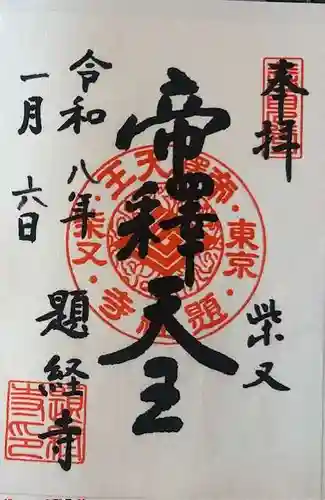 奉拝
柴又
帝釋天王
令和八年
一月六日
題経寺
帝釋天王
東京
柴又
題経寺